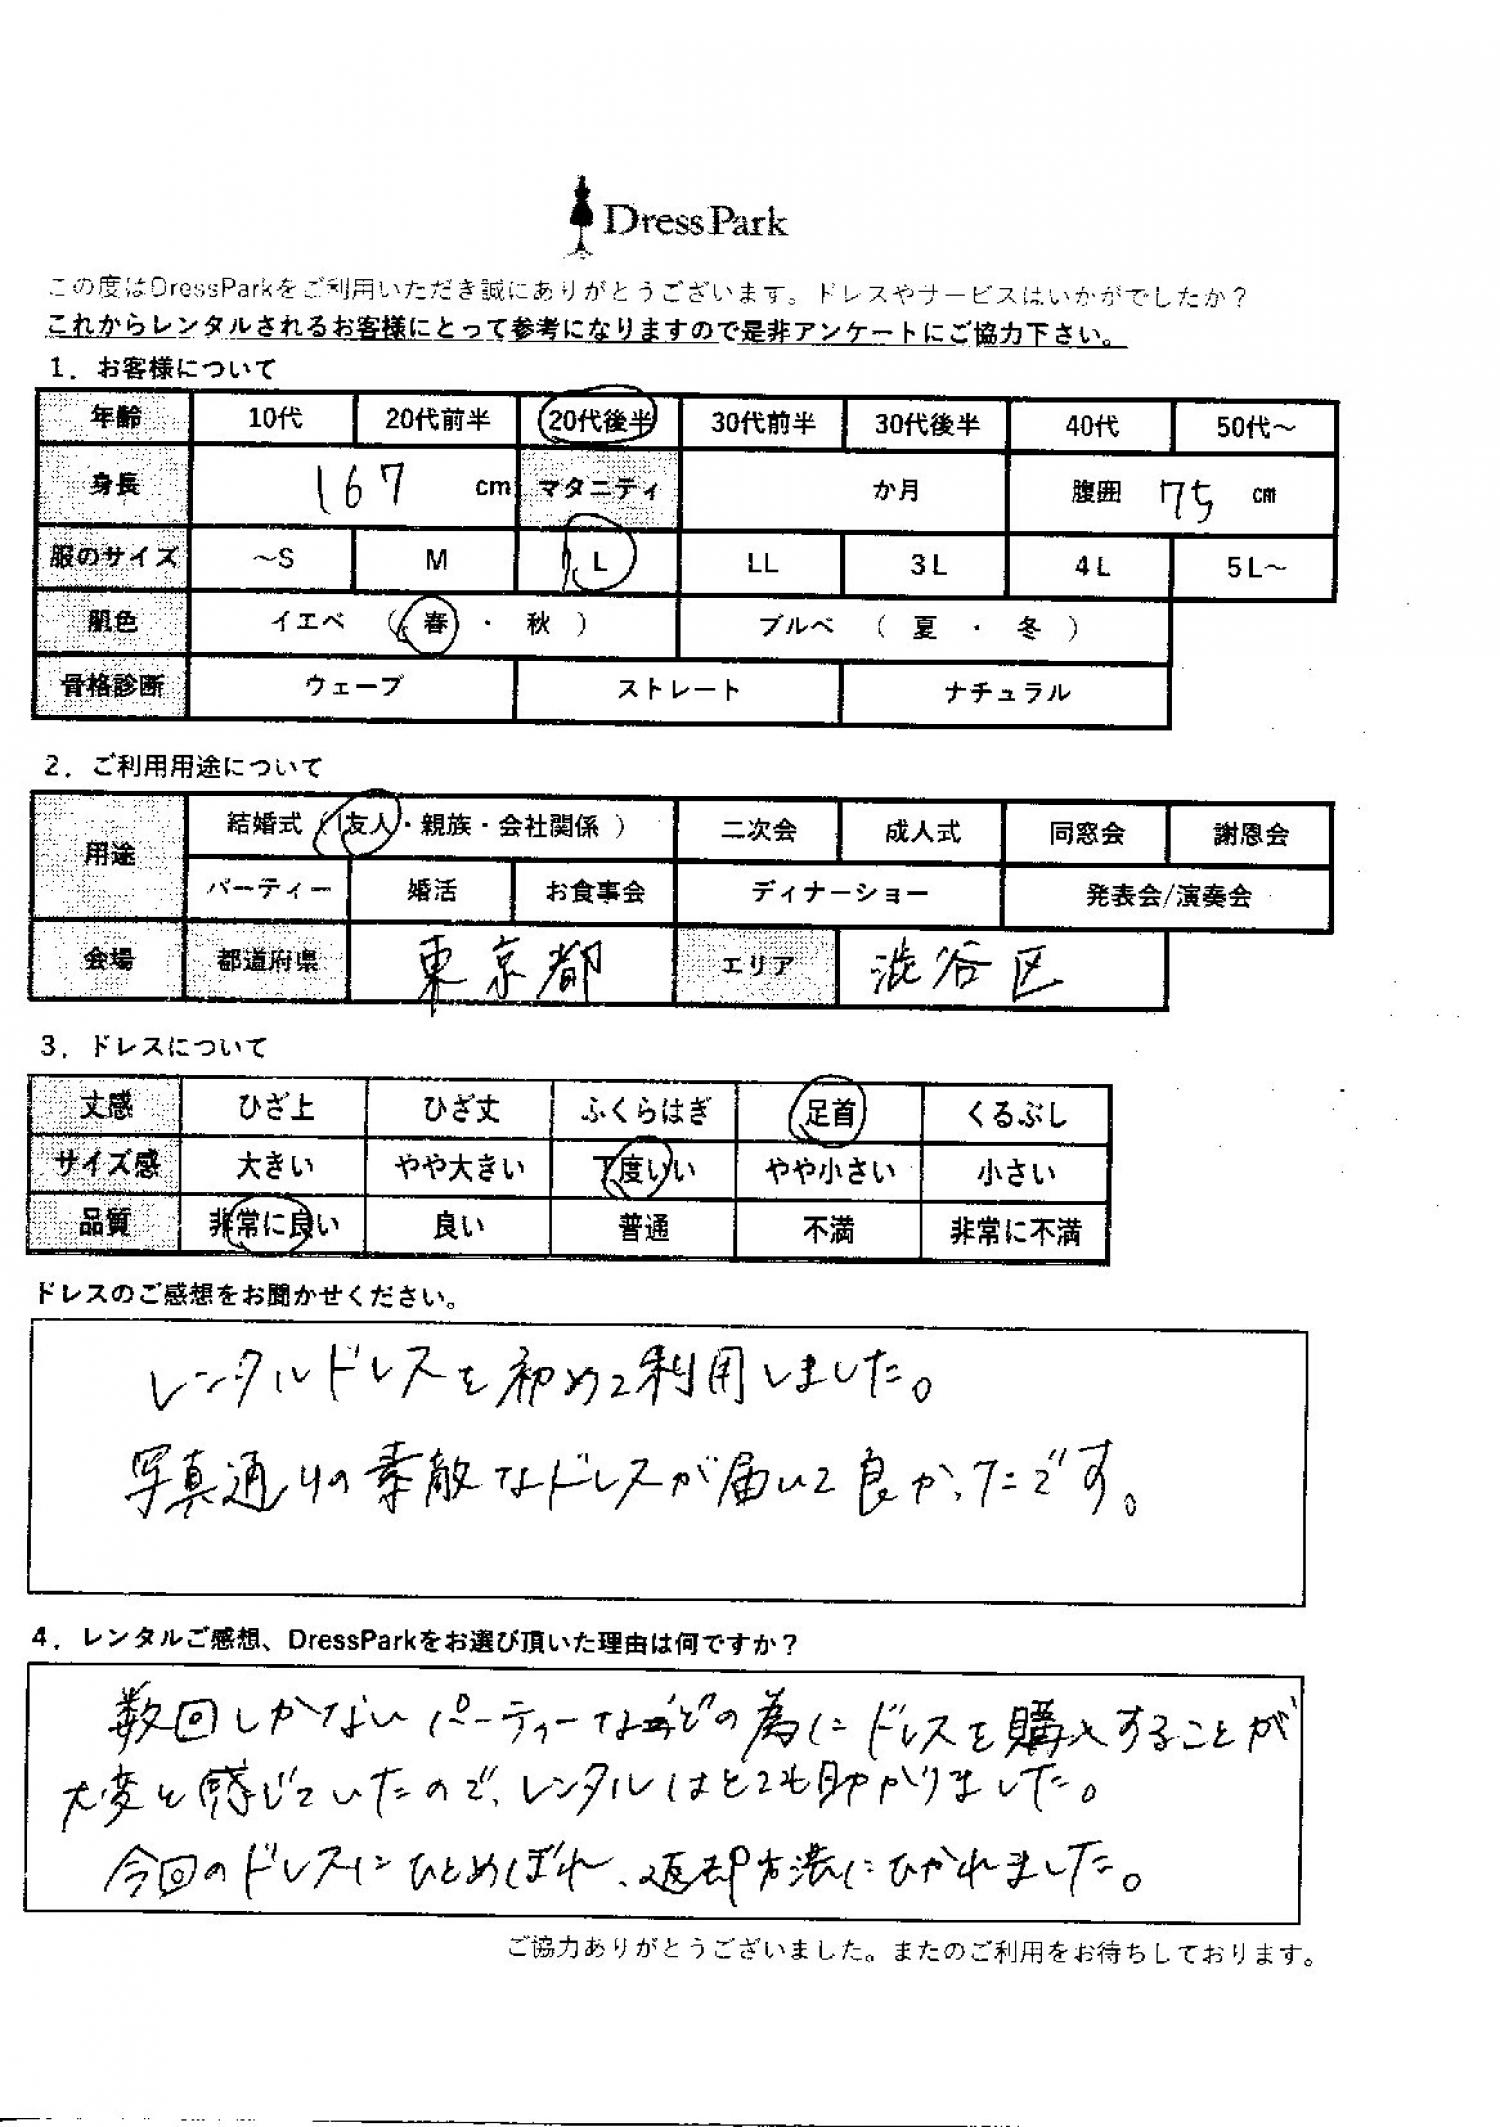 DressPark
この度はDressParkをご利用いただき誠にありがとうございます。ドレスやサービスはいかがでしたか？
これからレンタルされるお客様にとって参考になりますので是非アンケートにご協力下さい。
1．お客様について
年齢 10代 20代前半 20代後半 30代前半 30代後半 40代 50代～
身長 167 cm マタニティ か月 腹囲 75 cm
服のサイズ ～S M L LL 3L 4L 5L～
肌色 イエベ （ 春 ・ 秋 ） ブルベ （ 夏 ・ 冬 ）
骨格診断 ウェーブ ストレート ナチュラル
2．ご利用用途について
用途 結婚式（ 友人・親族・会社関係 ） 二次会 成人式 同窓会 謝恩会
パーティー 婚活 お食事会 ディナーショー 発表会/演奏会
会場 都道府県 東京都 エリア 渋谷区
3．ドレスについて
丈感 ひざ上 ひざ丈 ふくらはぎ 足首 くるぶし
サイズ感 大きい やや大きい 丁度いい やや小さい 小さい
品質 非常に良い 良い 普通 不満 非常に不満
ドレスのご感想をお聞かせください。
レンタルドレスを初めて利用しました。
写真通りの素敵なドレスが届いて良かったです。
4．レンタルご感想、DressParkをお選び頂いた理由は何ですか？
数回しかないパーティーなどの為にドレスを購入することが
大変と感じていたので、レンタルはとても助かりました。
今回のドレスにひとめぼれ、返却方法にひかれました。
ご協力ありがとうございました。またのご利用をお待ちしております。